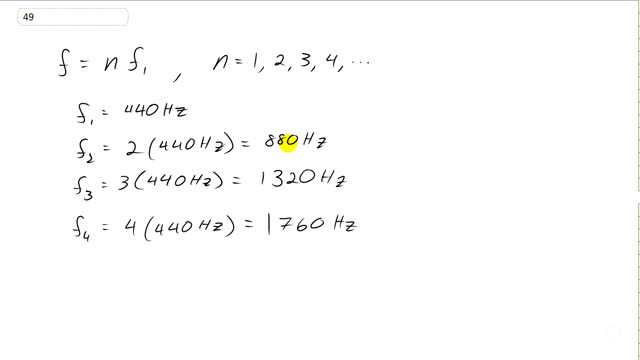 49
f = n f₁ , n = 1, 2, 3, 4, ...
f₁ = 440 Hz
f₂ = 2 (440 Hz) = 880 Hz
f₃ = 3 (440 Hz) = 1320 Hz
f₄ = 4 (440 Hz) = 1760 Hz